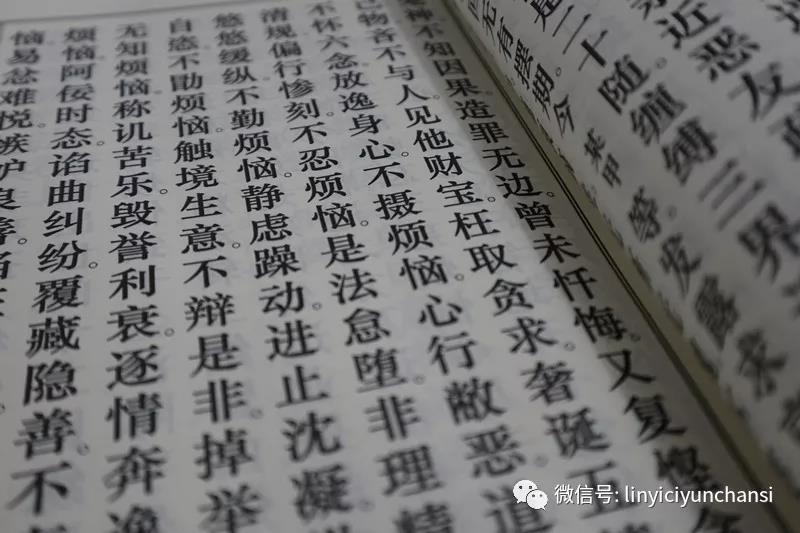 近恶友
二十随缠缚三界
有摆期今某甲等发露求
神不知因果造罪无边。曾未忏悔。又复悭
己物吝不与人。见他财宝。枉取贪求。奢诞五
不怀六念放逸身心。不摄烦恼。心行敝恶。道
清规偏行惨刻。不忍烦恼。是法怠堕。非理精
悠悠缓纵不勤烦恼。静虑躁动。进止沈凝
自恣不勖烦恼。触境生意。不辩是非。掉举
无知烦恼。称讥苦乐。毁誉利衰。逐情奔逸
烦恼。阿佞时态。谄曲纠纷。覆藏隐善。不
恼易忿难悦。嫉妒良善。
微信号: linyiciyunchansi